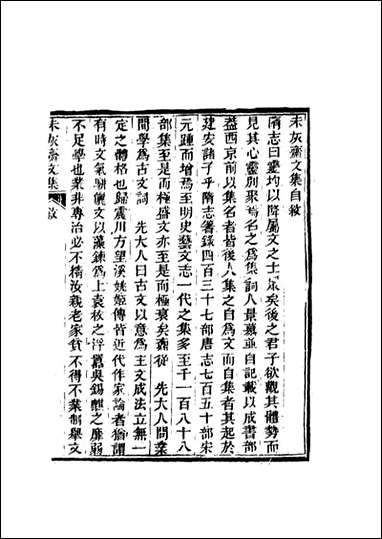 未灰齋文集自敘
隋志曰靈均以降屬文之士衆矣後之君子欲觀其體勢而
見其心靈別聚焉名之爲集詞人景慕並自記載以成書部
蓋西京前以集名者皆後人集之自爲文而自集者其起於
建安諸子乎隋志箸錄四百三十七部唐志七百五十部宋
元踵而增焉至明史藝文志一代之集多至千一百八十八
部集至是而極盛文亦至是而極衰矣鼒從 先大人問業
間學爲古文詞 先大人曰古文以意爲主文成法立無一
定之體格也歸震川方望溪姚姬傳皆近代作家論者猶謂
有時文氣駢儷文以藻鍊爲上袁枚之浮囂吳錫麒之靡弱
不足學也業非專治必不精汝親老家貧不得不業制舉文
未灰齋文集 敘